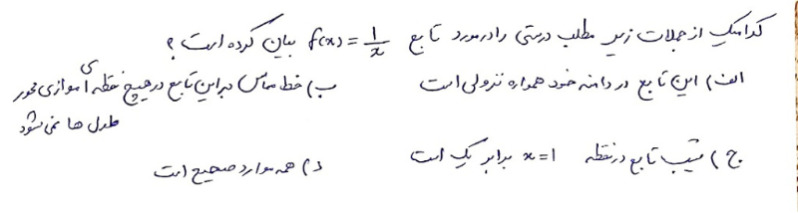 کدامیک از جملات زیر مطلب درستی را در مورد تابع f(x) = 1/x بیان کرده است؟
الف) این تابع در دامنه خود همواره نزولی است ب) خط مماس بر این تابع در هیچ نقطه‌ای موازی محور
طول ها نمی شود
ج) شیب تابع در نقطه x=1 برابر یک است د) همه موارد صحیح است